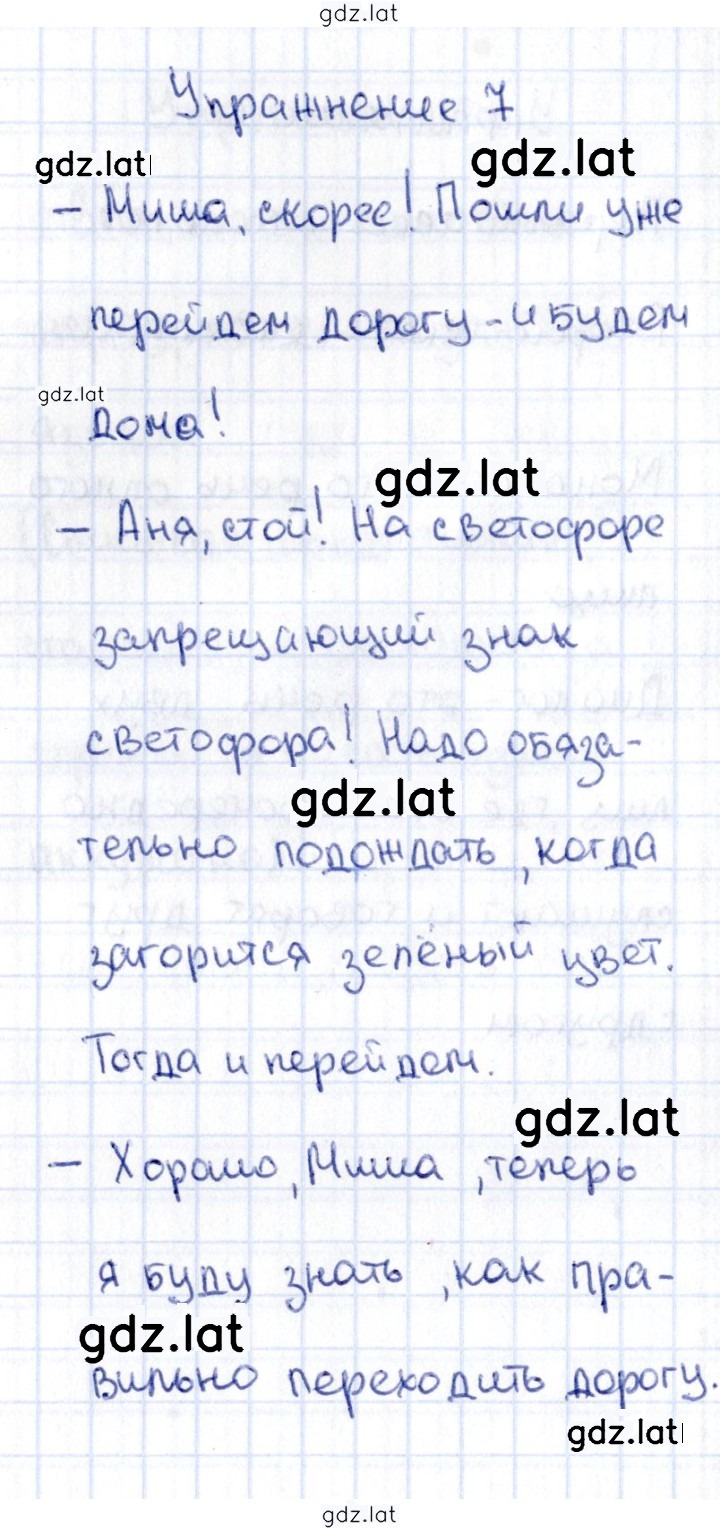 gdz.lat
Упражнение 7
gdz.lat
gdz.lat
– Миша, скорее! Пошли уже
перейдем дорогу - и будем
gdz.lat
дома!
gdz.lat
– Аня, стой! На светофоре
запрещающий знак
светофора! Надо обяза-
gdz.lat
тельно подождать, когда
загорится зелёный цвет.
Тогда и перейдем.
gdz.lat
– Хорошо, Миша, теперь
я буду знать, как пра-
gdz.lat
вильно переходить дорогу.
gdz.lat
gdz.lat